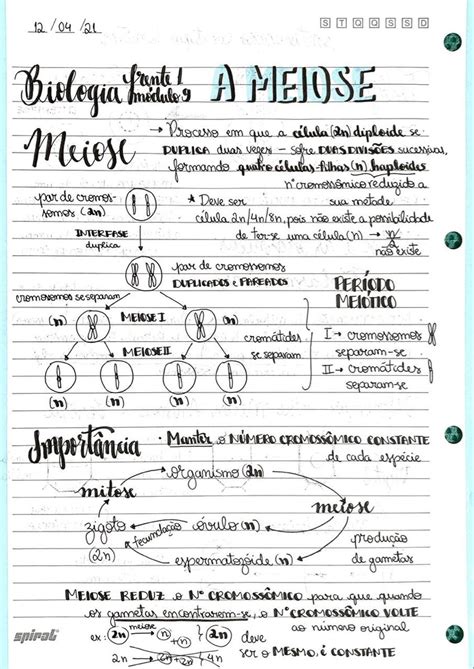 12 / 04 / 21
S T Q Q S S D
Biologia frente 1 módulo 9 A MEIOSE
Meiose → Processo em que a célula (2n) diploide se
DUPLICA duas vezes - sofre DUAS DIVISÕES sucessivas,
formando quatro células-filhas (n) haploides
n° cromossômico reduzido a
sua metade
par de cromos-
somos (2n)
* Deve ser
célula 2n/4n/8n, pois não existe a possibilidade
de ter-se uma célula (n) → n/2
não existe
INTERFASE
duplica
par de cromossomos
DUPLICADOS e PAREADOS
cromossomos se separam
PERÍODO
MEIÓTICO
(n) MEIOSE I (n)
I → cromossomos
separam-se
MEIOSE II
cromátides
se separam
II → cromátides
separam-se
(n) (n) (n) (n)
Importância · Manter o NÚMERO CROMOSSÔMICO CONSTANTE
de cada espécie
organismo (2n)
mitose
meiose
zigoto
(2n)
fecundação
óvulo (n)
espermatozóide (n)
produção
de gametas
MEIOSE REDUZ o N° CROMOSSÔMICO para que quando
os gametas encontrarem-se, o N° CROMOSSÔMICO VOLTE
ao número original
spiral
ex: 2n meiose (n) + (n) 2n deve
ser o MESMO, é CONSTANTE
2n → 2n + 2n 4n